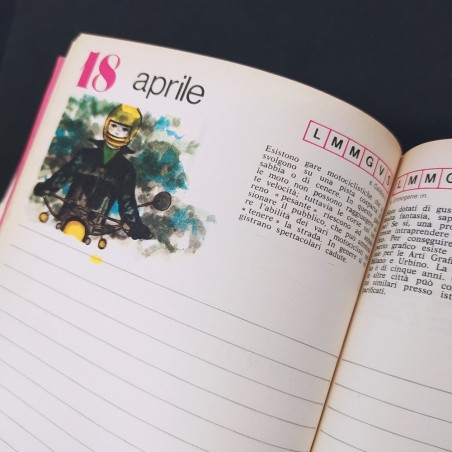 18 aprile
L M M G V S
Esistono gare motociclistiche che si
svolgono su una pista coperta di
sabbia o di cenere. In queste corse
le moto non possono raggiungere al-
te velocità; tuttavia le corse su ter-
reno « pesante » riescono ad appas-
sionare il pubblico, che può ammira-
re l'abilità dei vari motociclisti nel
« tenere » la strada. In genere si re-
gistrano spettacolari cadute.
L M M G
dotati di gus
fantasia, sap
si, una pro
intraprendere
Per conseguire
grafico esiste
per le Arti Grafi
e Urbino. La
di cinque anni.
altre città può co
similari presso ist